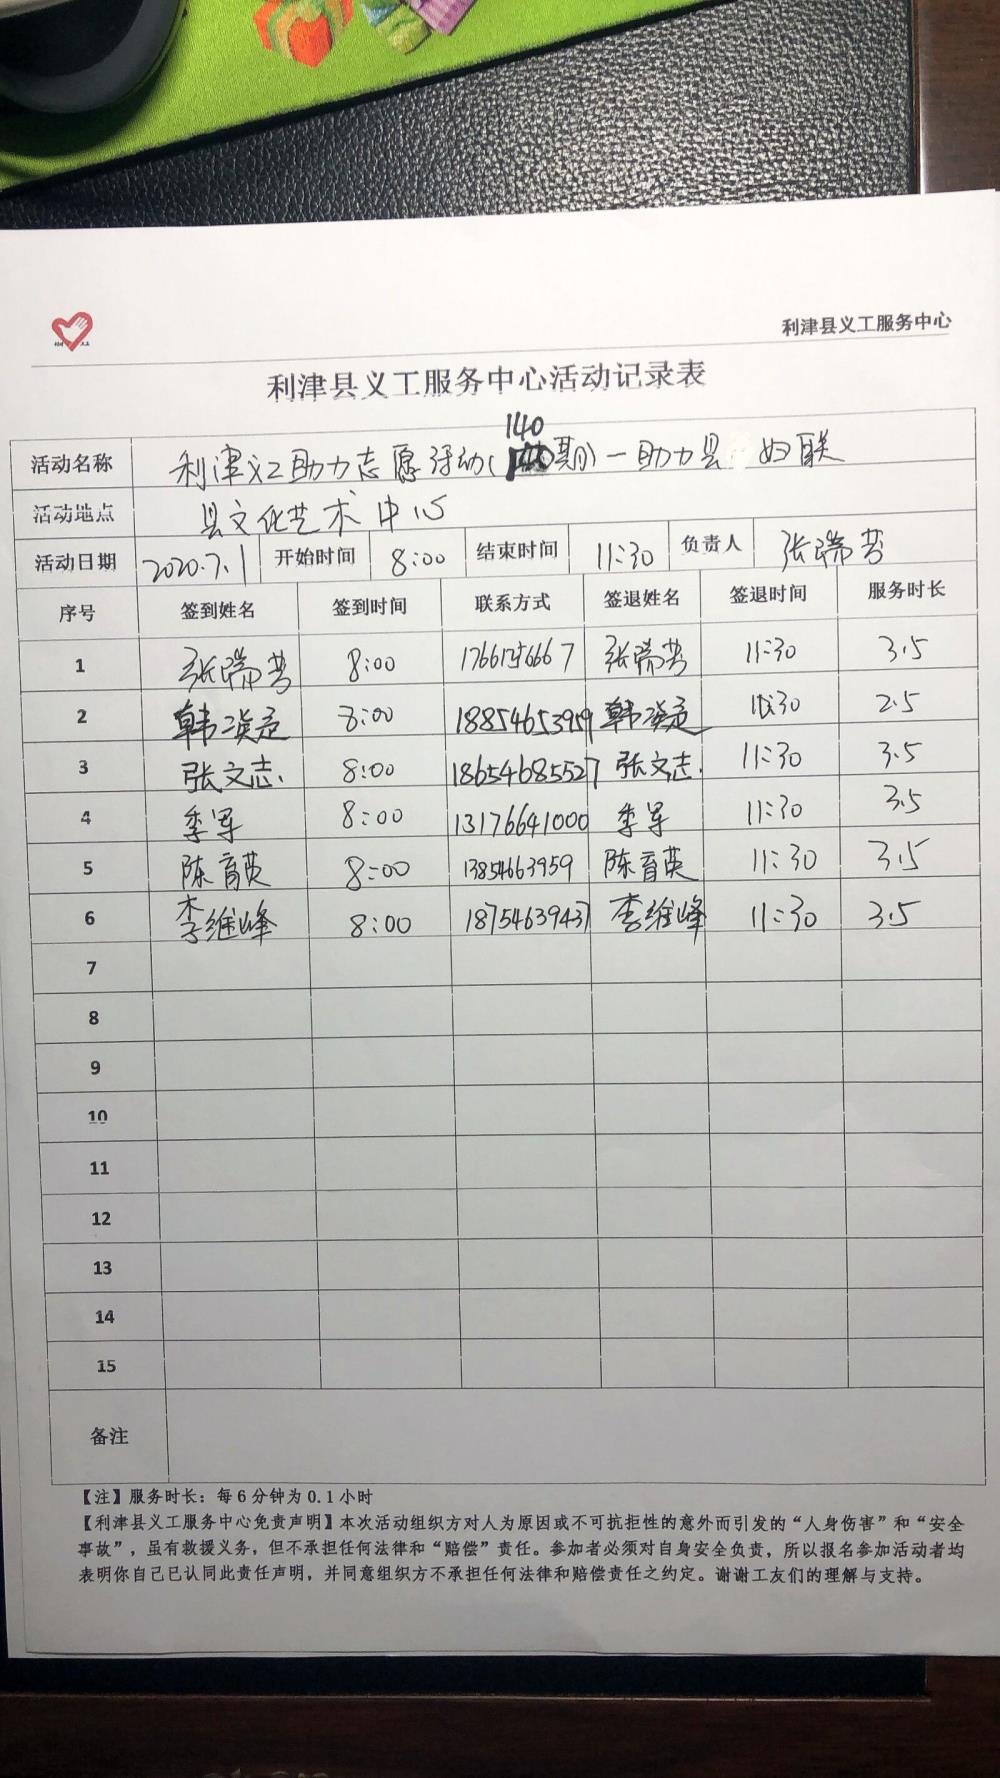 利津县义工服务中心
利津县义工服务中心活动记录表
140
活动名称 利津义工助力志愿活动( 期)一助力县 妇联
活动地点 县文化艺术中心
活动日期 2020.7.1 开始时间 8:00 结束时间 11:30 负责人 张瑞芳
序号 签到姓名 签到时间 联系方式 签退姓名 签退时间 服务时长
1 张瑞芳 8:00 张瑞芳 11:30 3.5
2 韩 8:00 18854653959 韩 :30 2.5
3 张文志 8:00 18654685527 张文志 11:30 3.5
4 季军 8:00 13176641000 季军 11:30 3.5
5 陈育英 8:00 13854663959 陈育英 11:30 3.5
6 李维峰 8:00 18754639437 李维峰 11:30 3.5
7
8
9
10
11
12
13
14
15
备注
【注】服务时长：每6分钟为0.1小时
【利津县义工服务中心免责声明】本次活动组织方对人为原因或不可抗拒性的意外而引发的“人身伤害”和“安全
事故”，虽有救援义务，但不承担任何法律和“赔偿”责任。参加者必须对自身安全负责，所以报名参加活动者均
表明你自己已认同此责任声明，并同意组织方不承担任何法律和赔偿责任之约定。谢谢工友们的理解与支持。